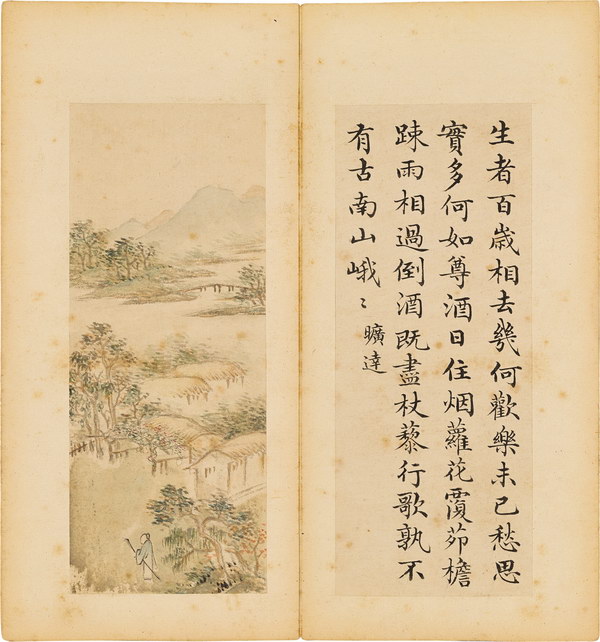 生者百歳相去幾何歡樂未已愁思
實多何如尊酒日住烟蘿花覆茆檐
踈雨相過倒酒既盡杖藜行歌孰不
有古南山峨〻 曠達